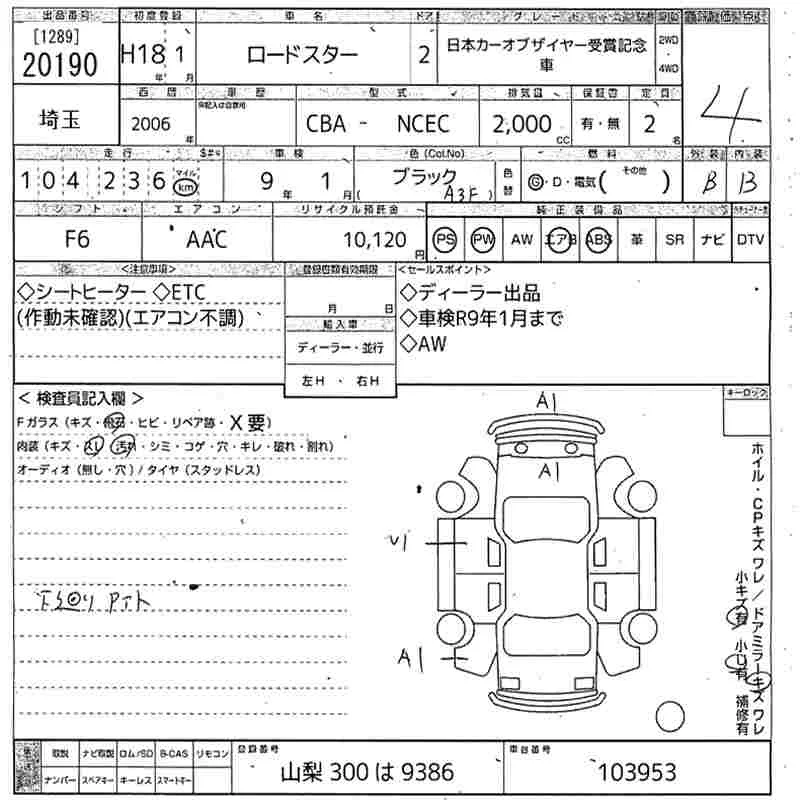 出品番号 初度登録 車名 ドア グレード 評価点
[1289]
20190 H18 1 ロードスター 2 日本カーオブザイヤー受賞記念車 2WD・4WD 4
年 月
埼玉 西暦 車歴 型式 排気量 保証書 定員
2006 年 CBA - NCEC 2,000 CC 有・無 2 名
走行 車検 色(Col.No) 燃料 外装 内装
104,236 マイル km 9 年 1 月 ブラック (A3F) 色替 G・D・電気 (その他) B B
シフト エアコン リサイクル預託金 純正装備品
F6 AAC 10,120 円 PS PW AW エアB ABS 革 SR ナビ DTV
<注意事項> 登録書類有効期限 <セールスポイント>
◇シートヒーター ◇ETC
(作動未確認)(エアコン不調)
月 日
輸入車
ディーラー・並行
左H ・ 右H
◇ディーラー出品
◇車検R9年1月まで
◇AW
< 検査員記入欄 >
Fガラス (キズ・飛石・ヒビ・リペア跡・X要)
内装 (キズ・スレ・汚れ・シミ・コゲ・穴・キレ・破れ・割れ)
オーディオ (無し・穴) / タイヤ (スタッドレス)
キーロック
A1
A1
U1
A1
ホイル・CPキズワレ/ドアミラーキズワレ
小キズ有 小凹有 補修有
取説 ナビ取説 ロム/SD B-CAS リモコン
ナンバー スペアキー キーレス スマートキー
登録番号 山梨 300 は 9386
車台番号 103953